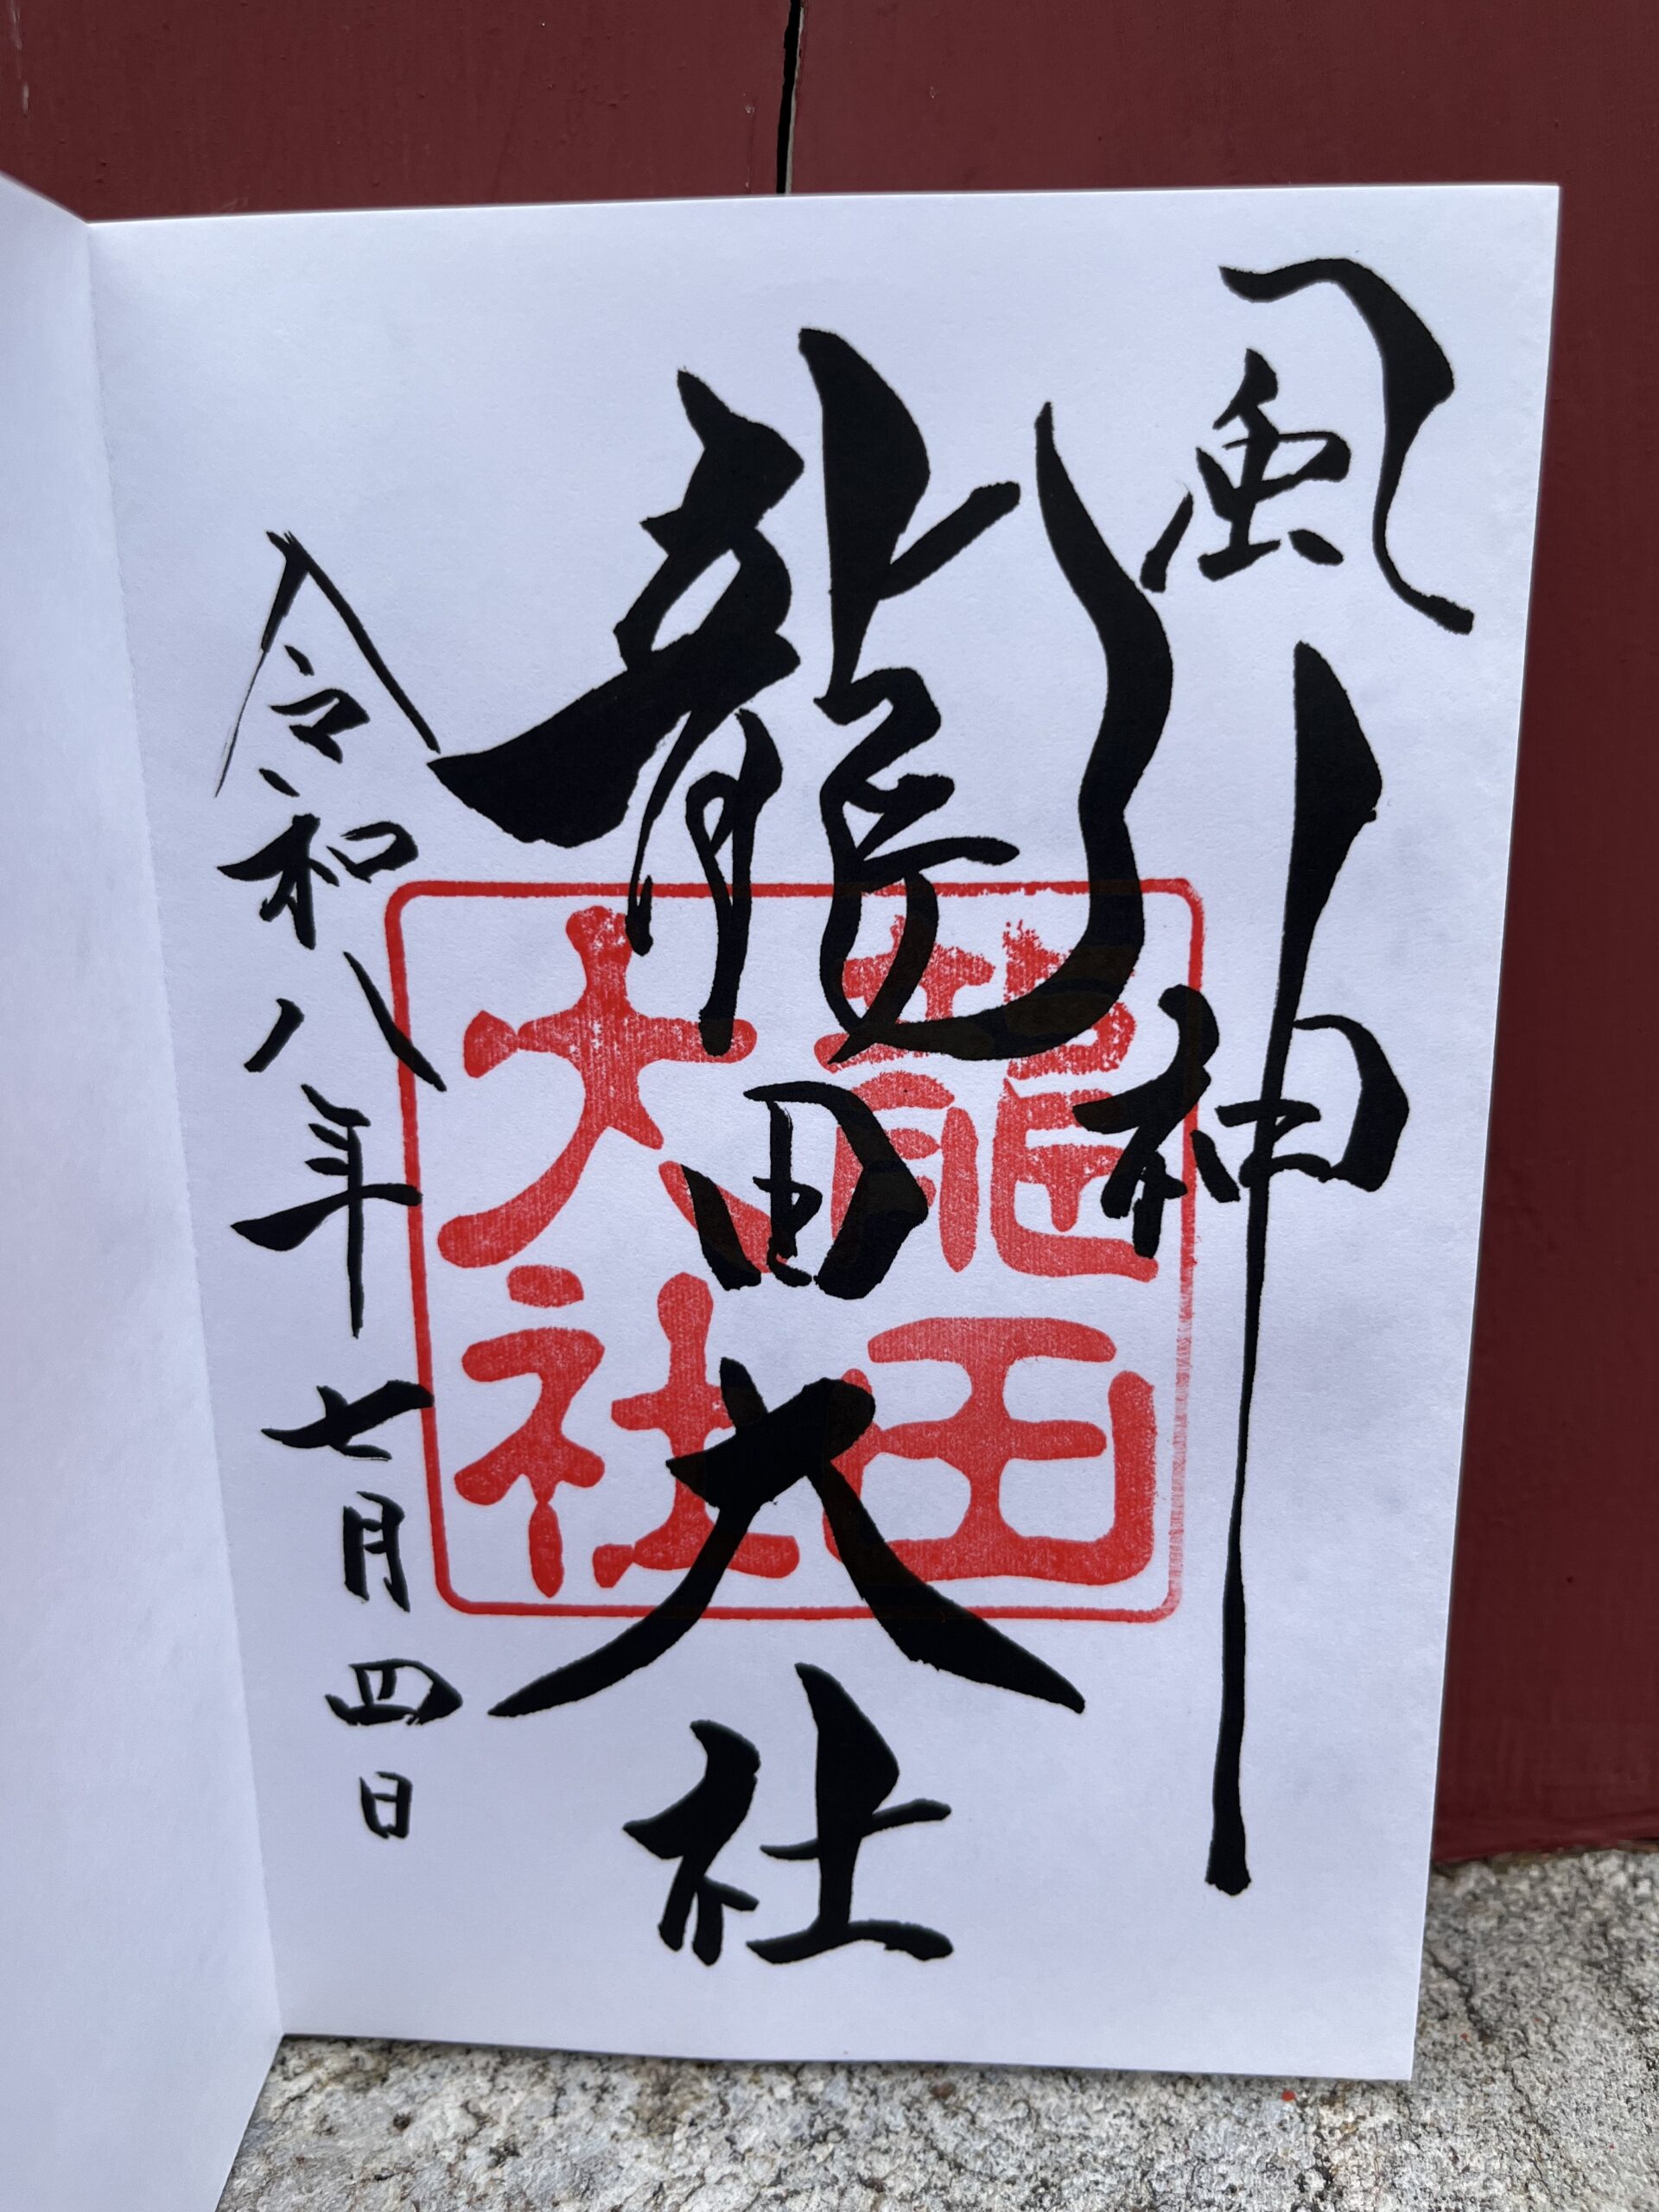 風神
龍田大社
龍田
大社
令和八年七月四日